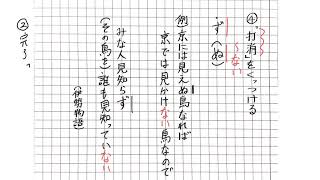 ④「打消」をくっつける
〜ない
ず（ぬ）
例 京には見えぬ鳥なれば
京では見かけない鳥なので
みな人見知らず
（その鳥を）誰も見知っていない
（伊勢物語）
②完了